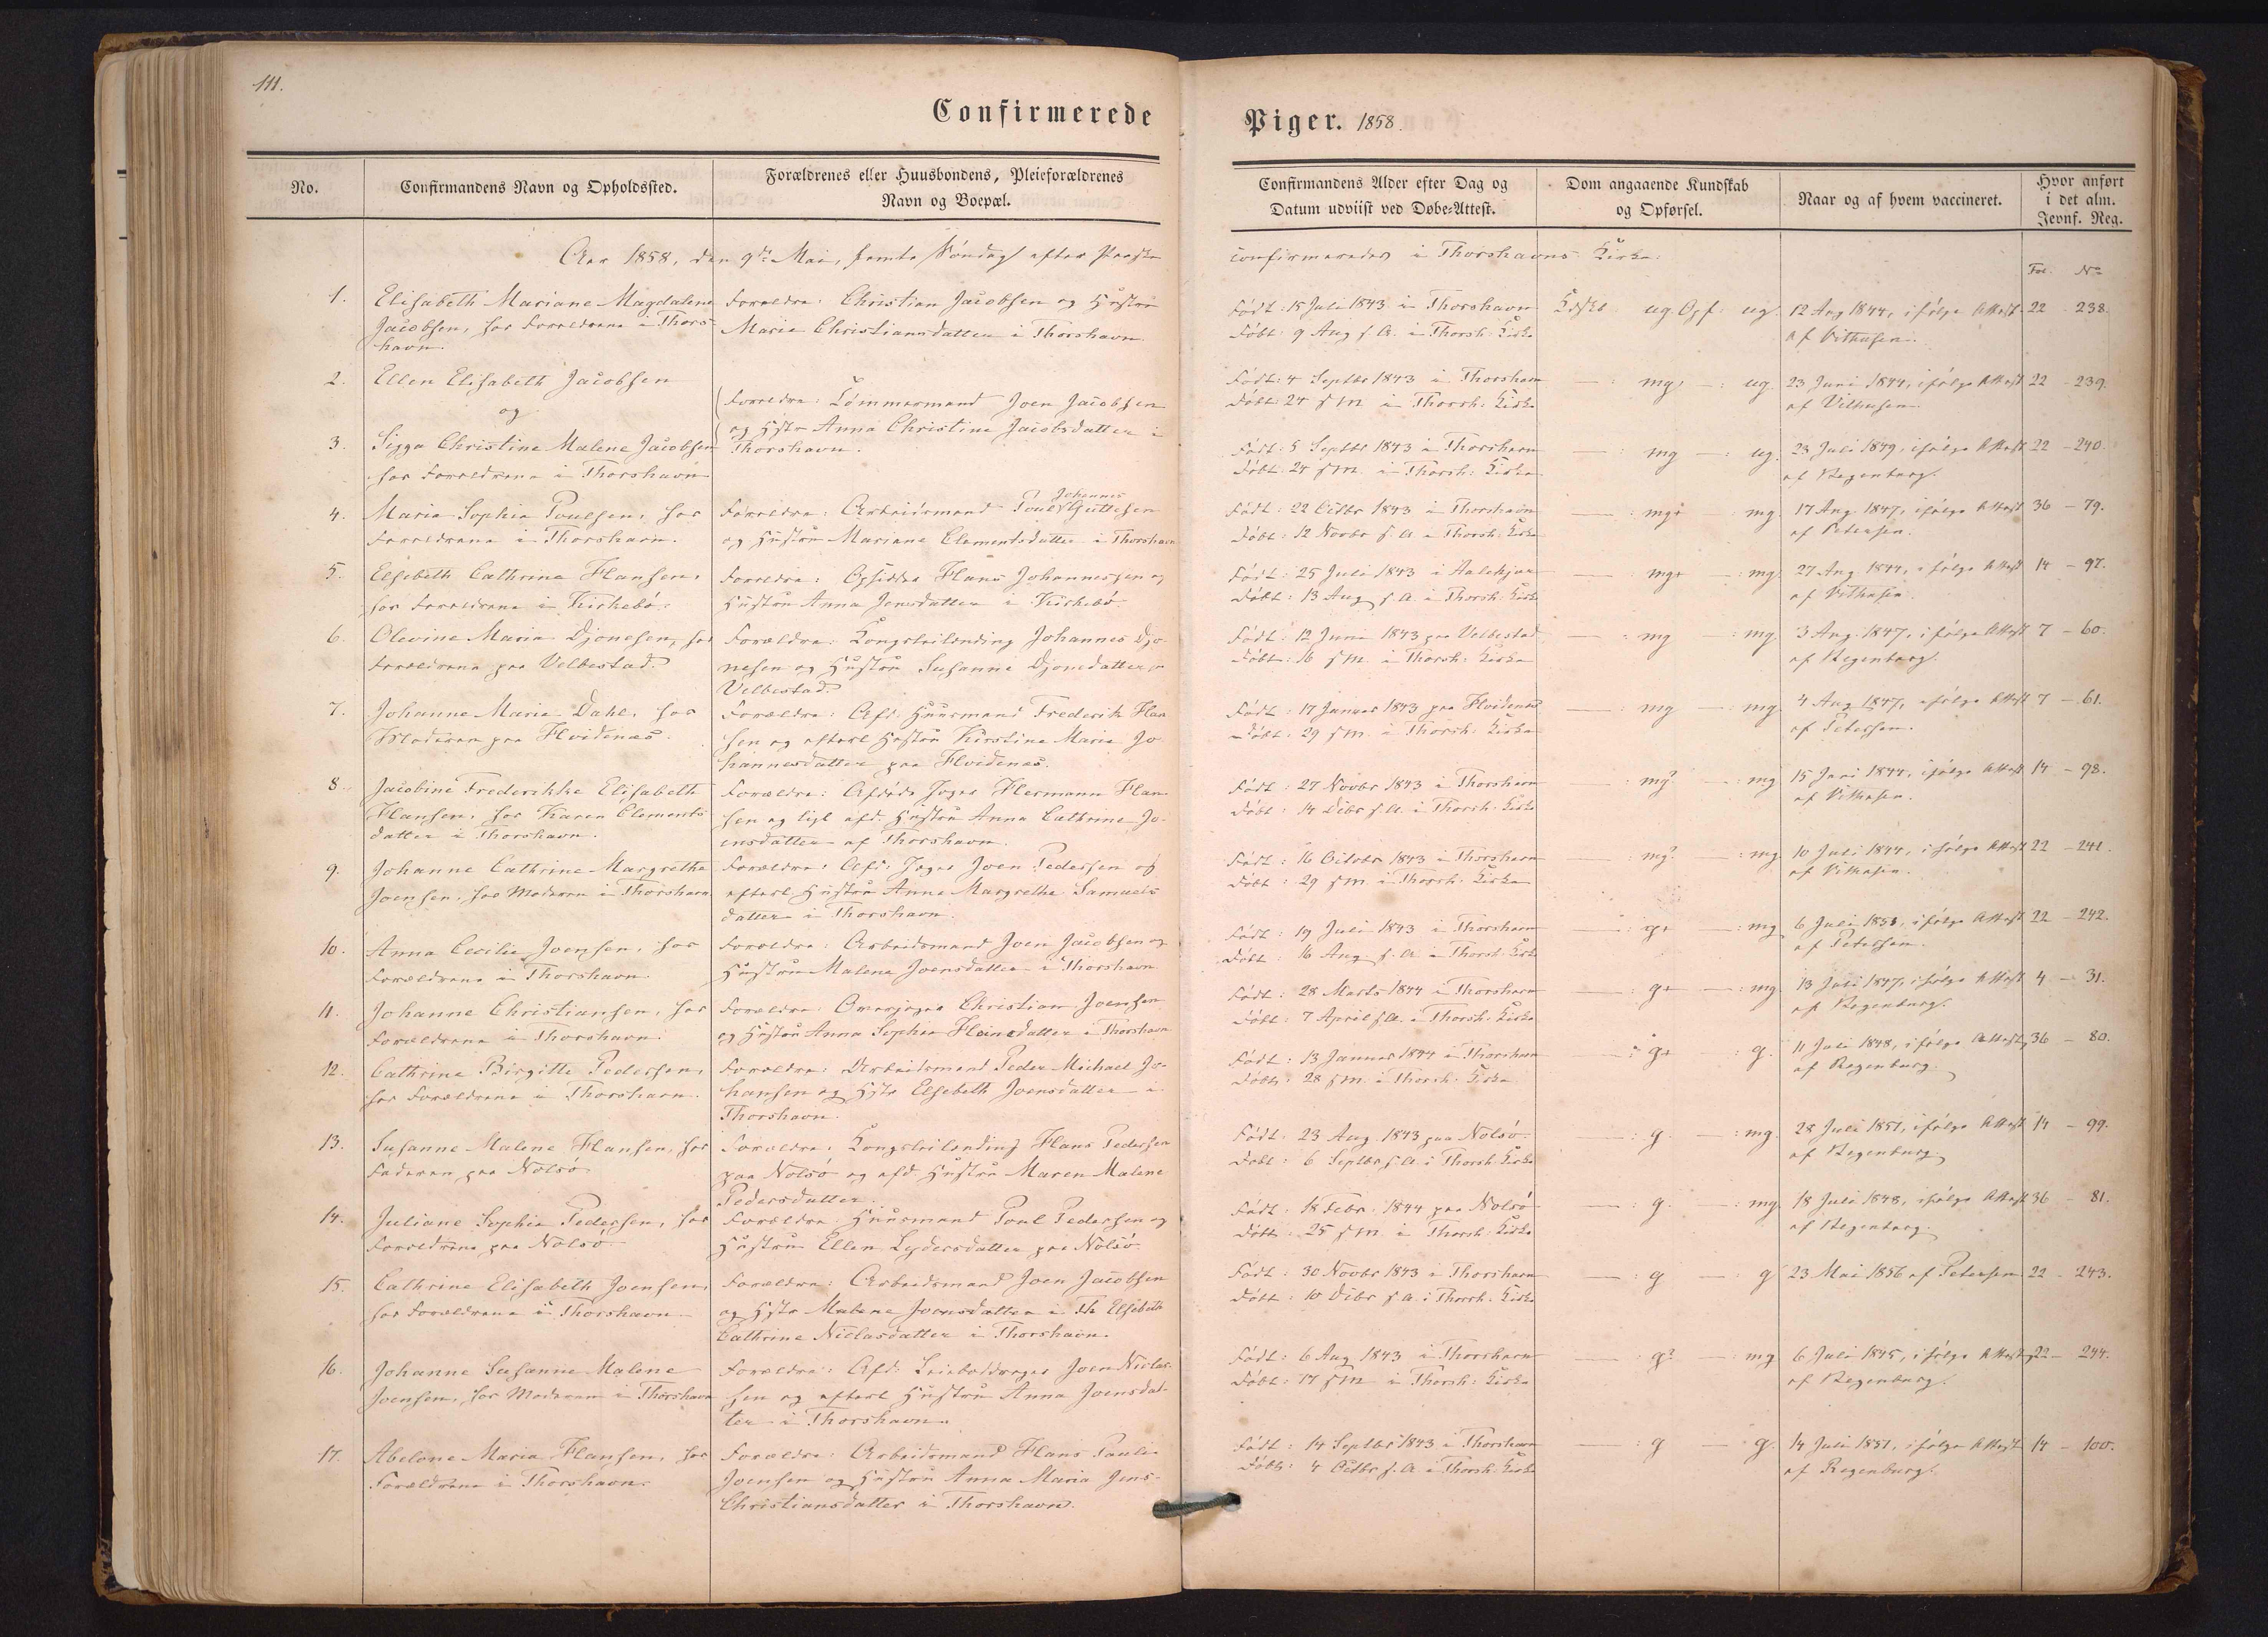 111.
Confirmerede
Piger. 1858.
No.
Confirmandens Navn og Opholdssted.
Forældrenes eller Huusbondens, Pleieforældrenes
Navn og Boepæl.
Confirmandens Alder efter Dag og
Datum udviist ved Døbe-Attest.
Dom angaaende Kundskab
og Opførsel.
Naar og af hvem vaccineret.
Hvor anført
i det alm.
Jevnf. Reg.
Aar 1858, den 9de Mai, femte Søndag efter Paaske
confirmeredes i Thorshavns Kirke:
Fol. No
1. Elisabeth Mariane Magdalene
Jacobsen, hos Forældrene i Thors-
havn.
Forældre: Christian Jacobsen og Hustru
Maria Christiansdatter i Thorshavn
Født: 15 Juli 1843 i Thorshavn
Døbt: 9 Aug s. A. i Thorsh: Kirke
Kdskb ug. Opf: ug.
12 Aug 1844, ifølge Attest
af Vithusen.
22 - 238.
2. Ellen Elisabeth Jacobsen
og
Forældre: Tømmermand Joen Jacobsen
og Hstr Anna Christine Jacobsdatter i
Thorshavn.
Født: 4 Septbr 1843 i Thorshavn
Døbt: 24 s M. i Thorsh: Kirke
mg, - : ug.
23 Juni 1844, ifølge Attest
af Vithusen
22 - 239.
3. Sigga Christine Malene Jacobsen
hos Forældrene i Thorshavn
Født: 5 Septbr 1843 i Thorshavn
Døbt: 24 s M. i Thorsh: Kirke
mg - : ug.
23 Juli 1849, ifølge Attest
af Regenburg.
22 - 240.
4. Maria Sophia Poulsen, hos
Forældrene i Thorshavn.
Johannes
Forældre: Arbeidsmand Poul Guttesen
og Hustru Mariane Clementsdatter i Thorshavn
Født: 22 Octbr 1843 i Thorshavn
Døbt: 12 Novbr s. A. i Thorsh: Kirke
mg+ mg.
17 Aug 1847, ifølge Attest
af Petersen.
36 - 79.
5. Elsebeth Cathrina Hansen,
hos Forældrene i Kirkebø.
Forældre: Opsidder Hans Johannessen og
Hustru Anna Jensdatter i Kirkebø.
Født: 25 Juli 1843 i
Døbt: 13 Aug s. A. i Thorsh: Kirke
mg+ - : mg.
27 Aug 1844, ifølge Attest
af Vithusen.
14 - 97.
6. Olevine Maria Djonesen, hos
Forældrene paa Velbestad.
Forældre: Kongsleilending Johannes Djo-
nesen og Hustru Susanne Djonedatter,
Velbestad.
Født: 12 Juni 1843 paa Velbestad
Døbt: 16 s M. i Thorsh: Kirke
mg - : mg.
3 Aug. 1847, ifølge Attest
af Regenburg.
7 - 60.
7. Johanne Maria Dahl, hos
Moderen paa Hvidenæs.
Forældre: Afd. Huusmand Frederik Han-
sen og efterl Hustru Kirstine Maria Jo-
hannesdatter paa Hvidenæs.
Født: 17 Januar 1843 paa Hvidenæs
Døbt: 29 s M. i Thorsh: Kirke
mg - : mg.
4 Aug 1847, ifølge Attest
af Petersen.
7 - 61.
8. Jacobine Frederikke Elisabeth
Hansen, hos Karen Clements-
datter i Thorshavn.
Forældre: Afdøde Jæger Hermann Han-
sen og lige afd. Hustru Anna Cathrine Jo-
ensdatter af Thorshavn.
Født: 27 Novbr 1843 i Thorshavn
Døbt: 14 Decbr s. A. i Thorsh: Kirke
mg? - : mg
15 Juni 1844, ifølge Attest
af Vithusen.
14 - 98.
9. Johanne Cathrine Margrethe
Joensen, hos Moderen i Thorshavn
Forældre: Afd. Jæger Joen Pedersen og
efterl Hustru Anna Margrethe Samuels-
datter i Thorshavn.
Født: 16 Octobr 1843 i Thorshavn
Døbt: 29 s M. i Thorsh: Kirke
mg? - : mg.
10 Juli 1844, ifølge Attest
af Vithusen.
22 - 241.
10. Anna Cecilie Joensen, hos
Forældrene i Thorshavn.
Forældre: Arbeidsmand Joen Jacobsen og
Hustru Malene Joensdatter i Thorshavn
Født: 19 Juli 1843 i Thorshavn
Døbt: 16 Aug. s. A. i Thorsh: Kirke
g+ - : mg.
6 Juli 1851, ifølge Attest
af Petersen.
22 - 242.
11. Johanne Christiansen, hos
Forældrene i Thorshavn.
Forældre: Christian Joensen
og Hustru Anna Sophia Heinedatter i Thorshavn
Født: 28 Marts 1844 i Thorshavn
Døbt: 7 April s. A. i Thorsh: Kirke
g+ - : mg.
13 Juli 1847, ifølge Attest
af Regenburg.
4 - 31.
12. Cathrine Birgitte Pedersen,
hos Forældrene i Thorshavn.
Forældre: Arbeidsmand Peder Michael Jo-
hansen og Hstr Elsebeth Joensdatter i
Thorshavn.
Født: 13 Januar 1844 i Thorshavn
Døbt: 28 s M. i Thorsh: Kirke
g+ : g.
11 Juli 1848, ifølge Attest,
af Regenburg.
36 - 80.
13. Susanne Malene Hansen, hos
Faderen paa Nolsø
Forældre: Kongsleilending Hans Pedersen
paa Nolsø og afd. Hustru Maren Malene
Pedersdatter.
Født: 23 Aug. 1843 paa Nolsø.
Døbt: 6 Septbr s. A. i Thorsh: Kirke
g. - : mg.
28 Juli 1851, ifølge Attest
af Regenburg.
14 - 99.
14. Juliane Sophia Pedersen, hos
Forældrene paa Nolsø
Forældre: Huusmand Poul Pedersen og
Hustru Ellen Lydersdatter paa Nolsø.
Født: 18 Febr. 1844 paa Nolsø
Døbt: 25 s M. i Thorsh: Kirke
g. : mg.
18 Juli 1848, ifølge Attest
af Regenburg.
36 - 81.
15. Cathrine Elisabeth Joensen,
hos Forældrene i Thorshavn
Forældre: Arbeidsmand Joen Jacobsen
og Hstr Malene Joensdatter i Th Elsebeth
Cathrine Niclasdatter i Thorshavn.
Født: 30 Novbr 1843 i Thorshavn
Døbt: 10 Decbr s. A. i Thorsh: Kirke
: g - g
23 Mai 1856 af Petersen
22 - 243.
16. Johanne Susanne Malene
Joensen, hos Moderen i Thorshavn
Forældre: Afd. Joen Niclas-
sen og efterl Hustru Anna Joensdat-
ter i Thorshavn.
Født: 6 Aug 1843 i Thorshavn
Døbt: 17 s M. i Thorsh: Kirke
: g? - : mg
6 Juli 1845, ifølge Attest
af Regenburg.
22 - 244.
17. Abelone Maria Hansen, hos
Forældrene i Thorshavn.
Forældre: Arbeidsmand Hans Paulí
Joensen og Hustru Anna Maria Jens-
Christiansdatter i Thorshavn.
Født: 14 Septbr 1843 i Thorshavn
Døbt: 4 Octbr s. A. i Thorsh: Kirke
: g - g.
14 Juli 1851, ifølge Attest
af Regenburg.
14 - 100.